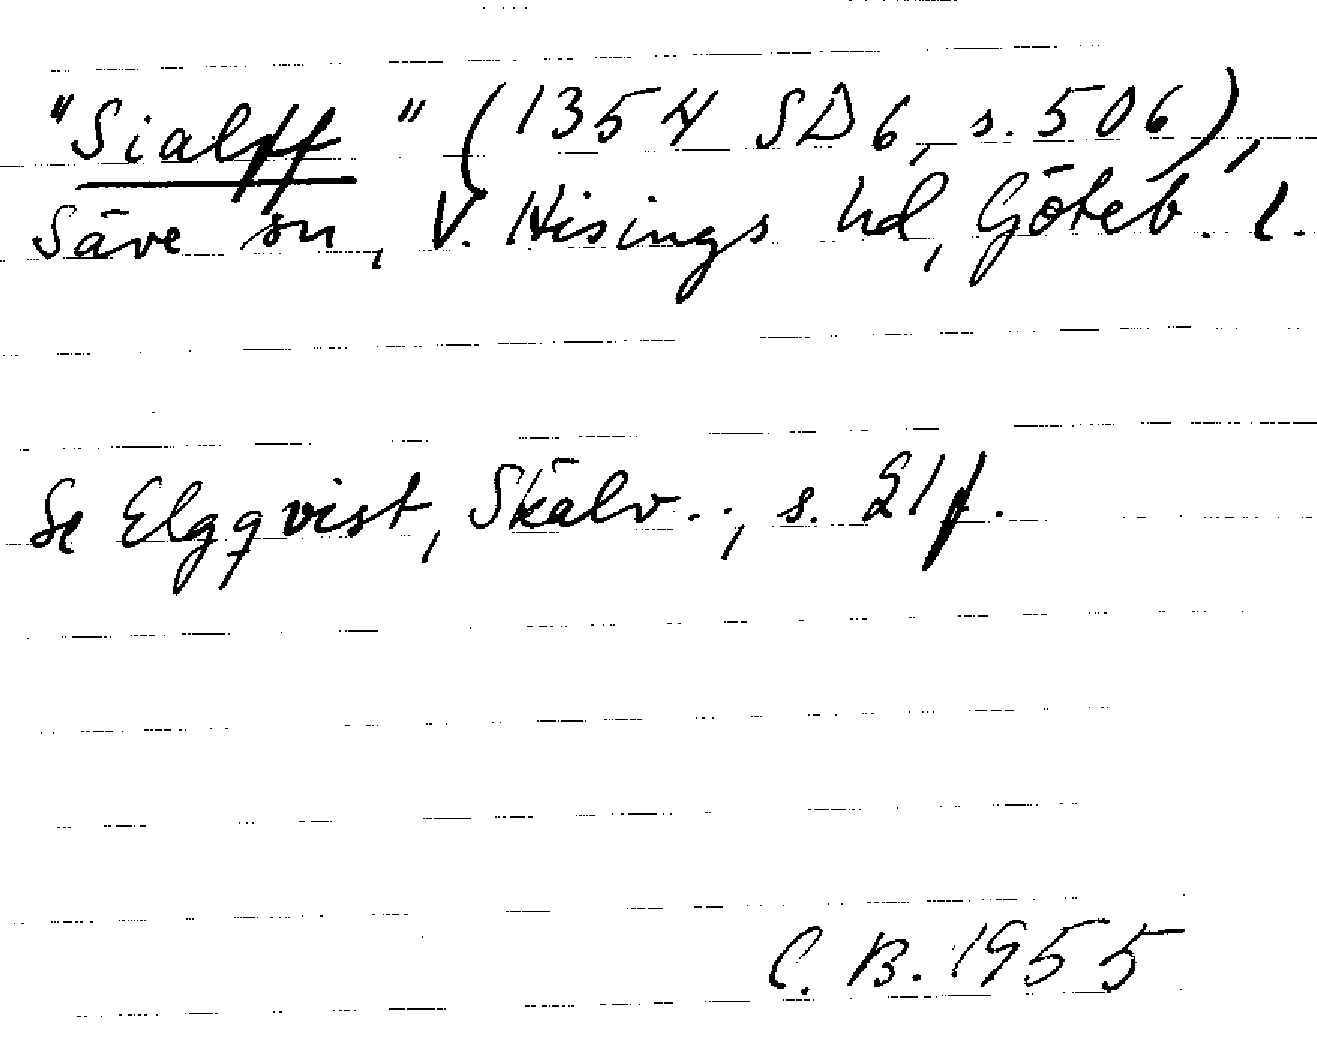 "Sialff" (1354 SD 6, s. 506),
Säve sn, V. Hisings hd, Göteb. l.
Se Elgqvist, Skälv.., s. 21 f.
C. B. 1955